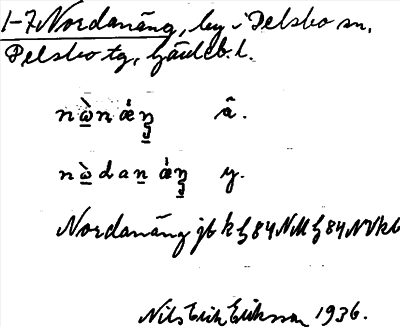 1-7 Nordanäng, by i Delsbo sn,
Delsbo tg, Gävleb. l.
nὼnǽŋ â.
nὼdanǽŋ y.
Nordanäng jb k G 84 NM G 84 NV kb
Nils Erik Eriksson 1936.